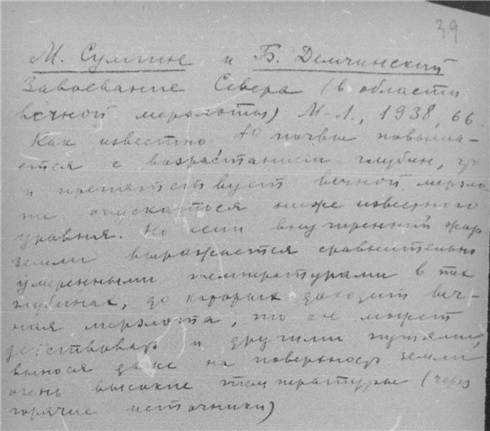 39
М. Сумгин и Б. Демчинский
Завоевание Севера (в области
вечной мерзлоты) М-Л., 1938, 66.
Как известно, t° почвы повыша-
ется с возрастанием глубин, что
и препятствует вечной мерзло-
те опускаться ниже известного
уровня. Но если внутренний жар
земли выражается сравнительно
умеренными температурами в тех
глубинах, до которых доходит веч-
ная мерзлота, то он может
действовать и другими путями,
вынося даже на поверхность земли
очень высокие температуры (через
горячие источники)